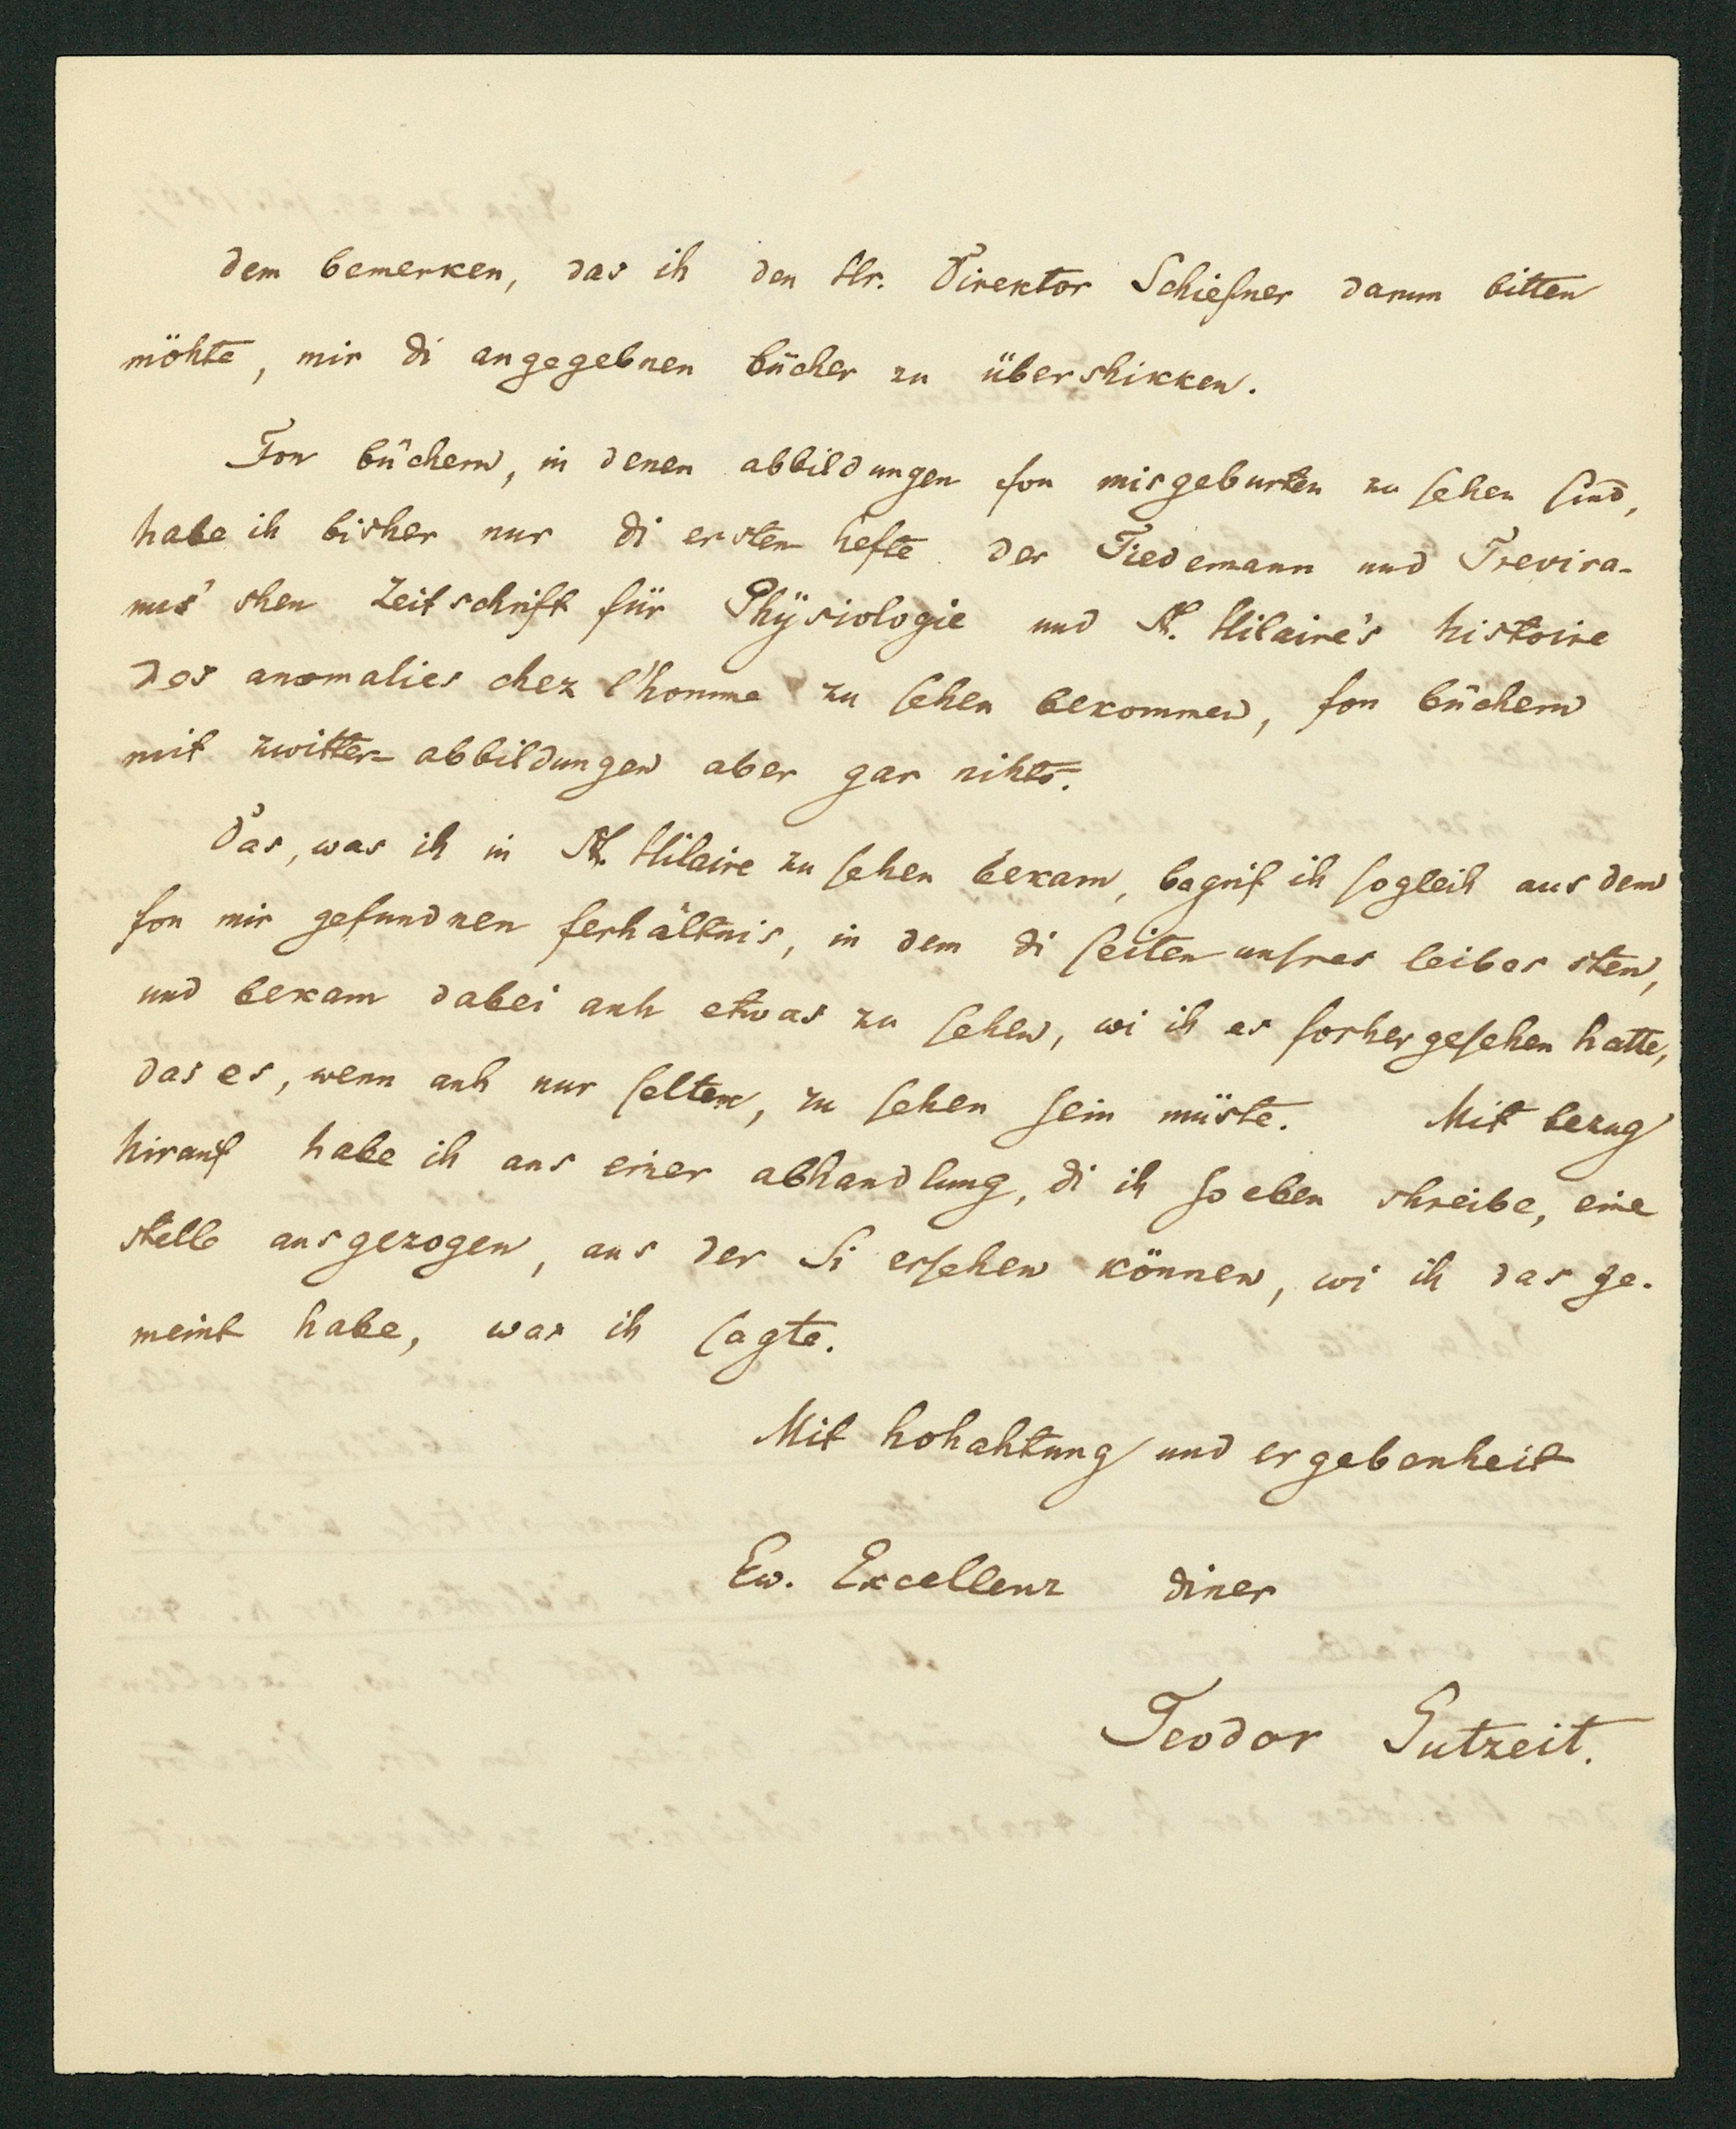 dem bemerken, das ih den Hr. Direktor Schiefner darum bitten
möhte, mir di angegebnen bücher zu übershikken.
Fon büchern, in denen abbildungen fon misgeburten zu sehen sind,
habe ih bisher nur di ersten hefte der Tiedemann und Trevira-
nus'shen Zeitschrift für Phÿsiologie und St. Hilaire's histoire
des anomalies chez l'homme zu sehen bekommen, fon büchern
mit zwitter-abbildungen aber gar nihts.
Das, was ih in St. Hilaire zu sehen bekam, begrif ih sogleih aus dem
fon mir gefundnen ferhältnis, in dem di seiten unsres leibes sten,
und bekam dabei auh etwas zu sehen, wi ih es forhergesehen hatte,
das es, wenn auh nur selten, zu sehen sein müste. Mit bezug
hirauf habe ih aus einer abhandlung, di ih so eben shreibe, eine
stelle ausgezogen, aus der Si ersehen können, wi ih das ge-
meint habe, was ih sagte.
Mit hohahtung und ergebenheit
Ew. Excellenz diner
Teodor Gutzeit.